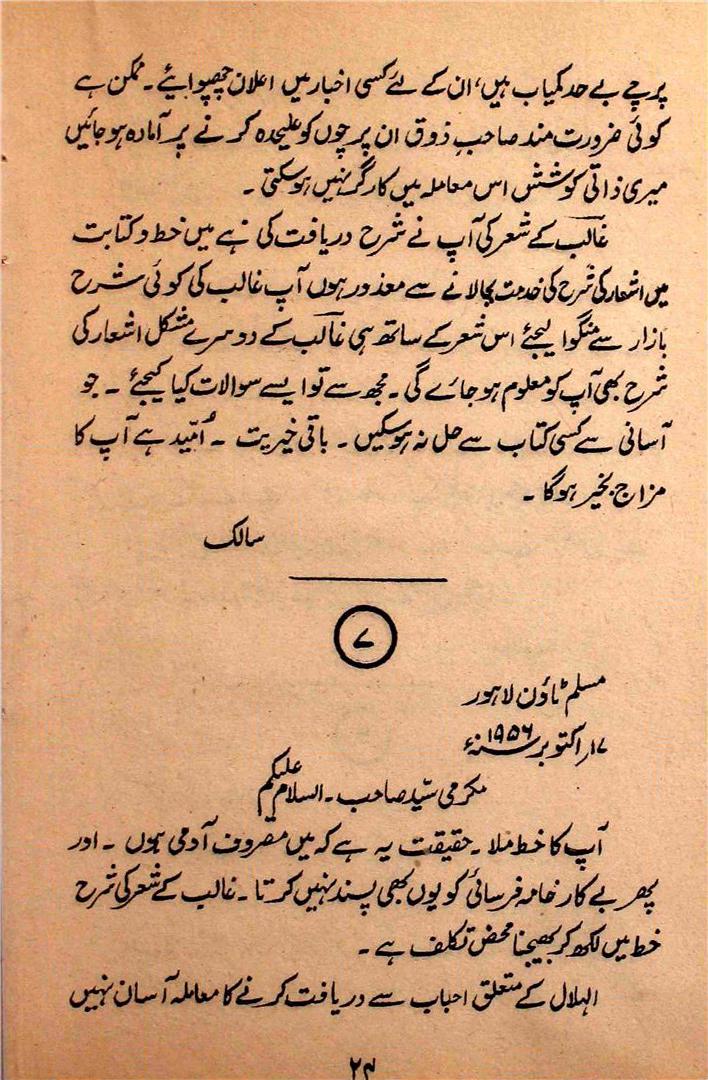 پرچے بے حد کمیاب ہیں، ان کے لئے کسی اخبار میں اعلان چھپوائیے۔ ممکن ہے
کوئی ضرورت مند صاحبِ ذوق ان پرچوں کو علیحدہ کرنے پر آمادہ ہو جائیں
میری ذاتی کوشش اس معاملہ میں کارگر نہیں ہو سکتی ۔
غالب کے شعر کی آپ نے شرح دریافت کی ہے میں خط و کتابت
میں اشعار کی شرح کی خدمت بجا لانے سے معذور ہوں آپ غالب کی کوئی شرح
بازار سے منگوا لیجئے اس شعر کے ساتھ ہی غالب کے دوسرے مشکل اشعار کی
شرح بھی آپ کو معلوم ہو جائے گی ۔ مجھ سے تو ایسے سوالات کیا کیجئے ۔ جو
آسانی سے کسی کتاب سے حل نہ ہو سکیں ۔ باقی خیریت ۔ اُمّید ہے آپ کا
مزاج بخیر ہوگا ۔
سالک
۷
مسلم ٹاؤن لاہور
۱۷ اکتوبر ۱۹۵۶ء
مکرمی سیّد صاحب ۔ السلام علیکم
آپ کا خط ملا ۔ حقیقت یہ ہے کہ میں مصروف آدمی ہوں ۔ اور
پھر بے کار خامہ فرسائی کو یوں بھی پسند نہیں کرتا ۔ غالب کے شعر کی شرح
خط میں لکھ کر بھیجنا محض تکلف ہے ۔
الہلال کے متعلق احباب سے دریافت کرنے کا معاملہ آسان نہیں
۲۴